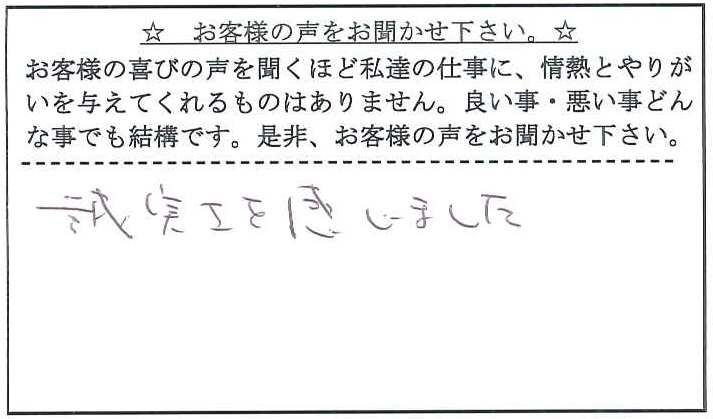 ☆ お客様の声をお聞かせ下さい。☆
お客様の喜びの声を聞くほど私達の仕事に、情熱とやりが
いを与えてくれるものはありません。良い事・悪い事どん
な事でも結構です。是非、お客様の声をお聞かせ下さい。
誠実さを感じました